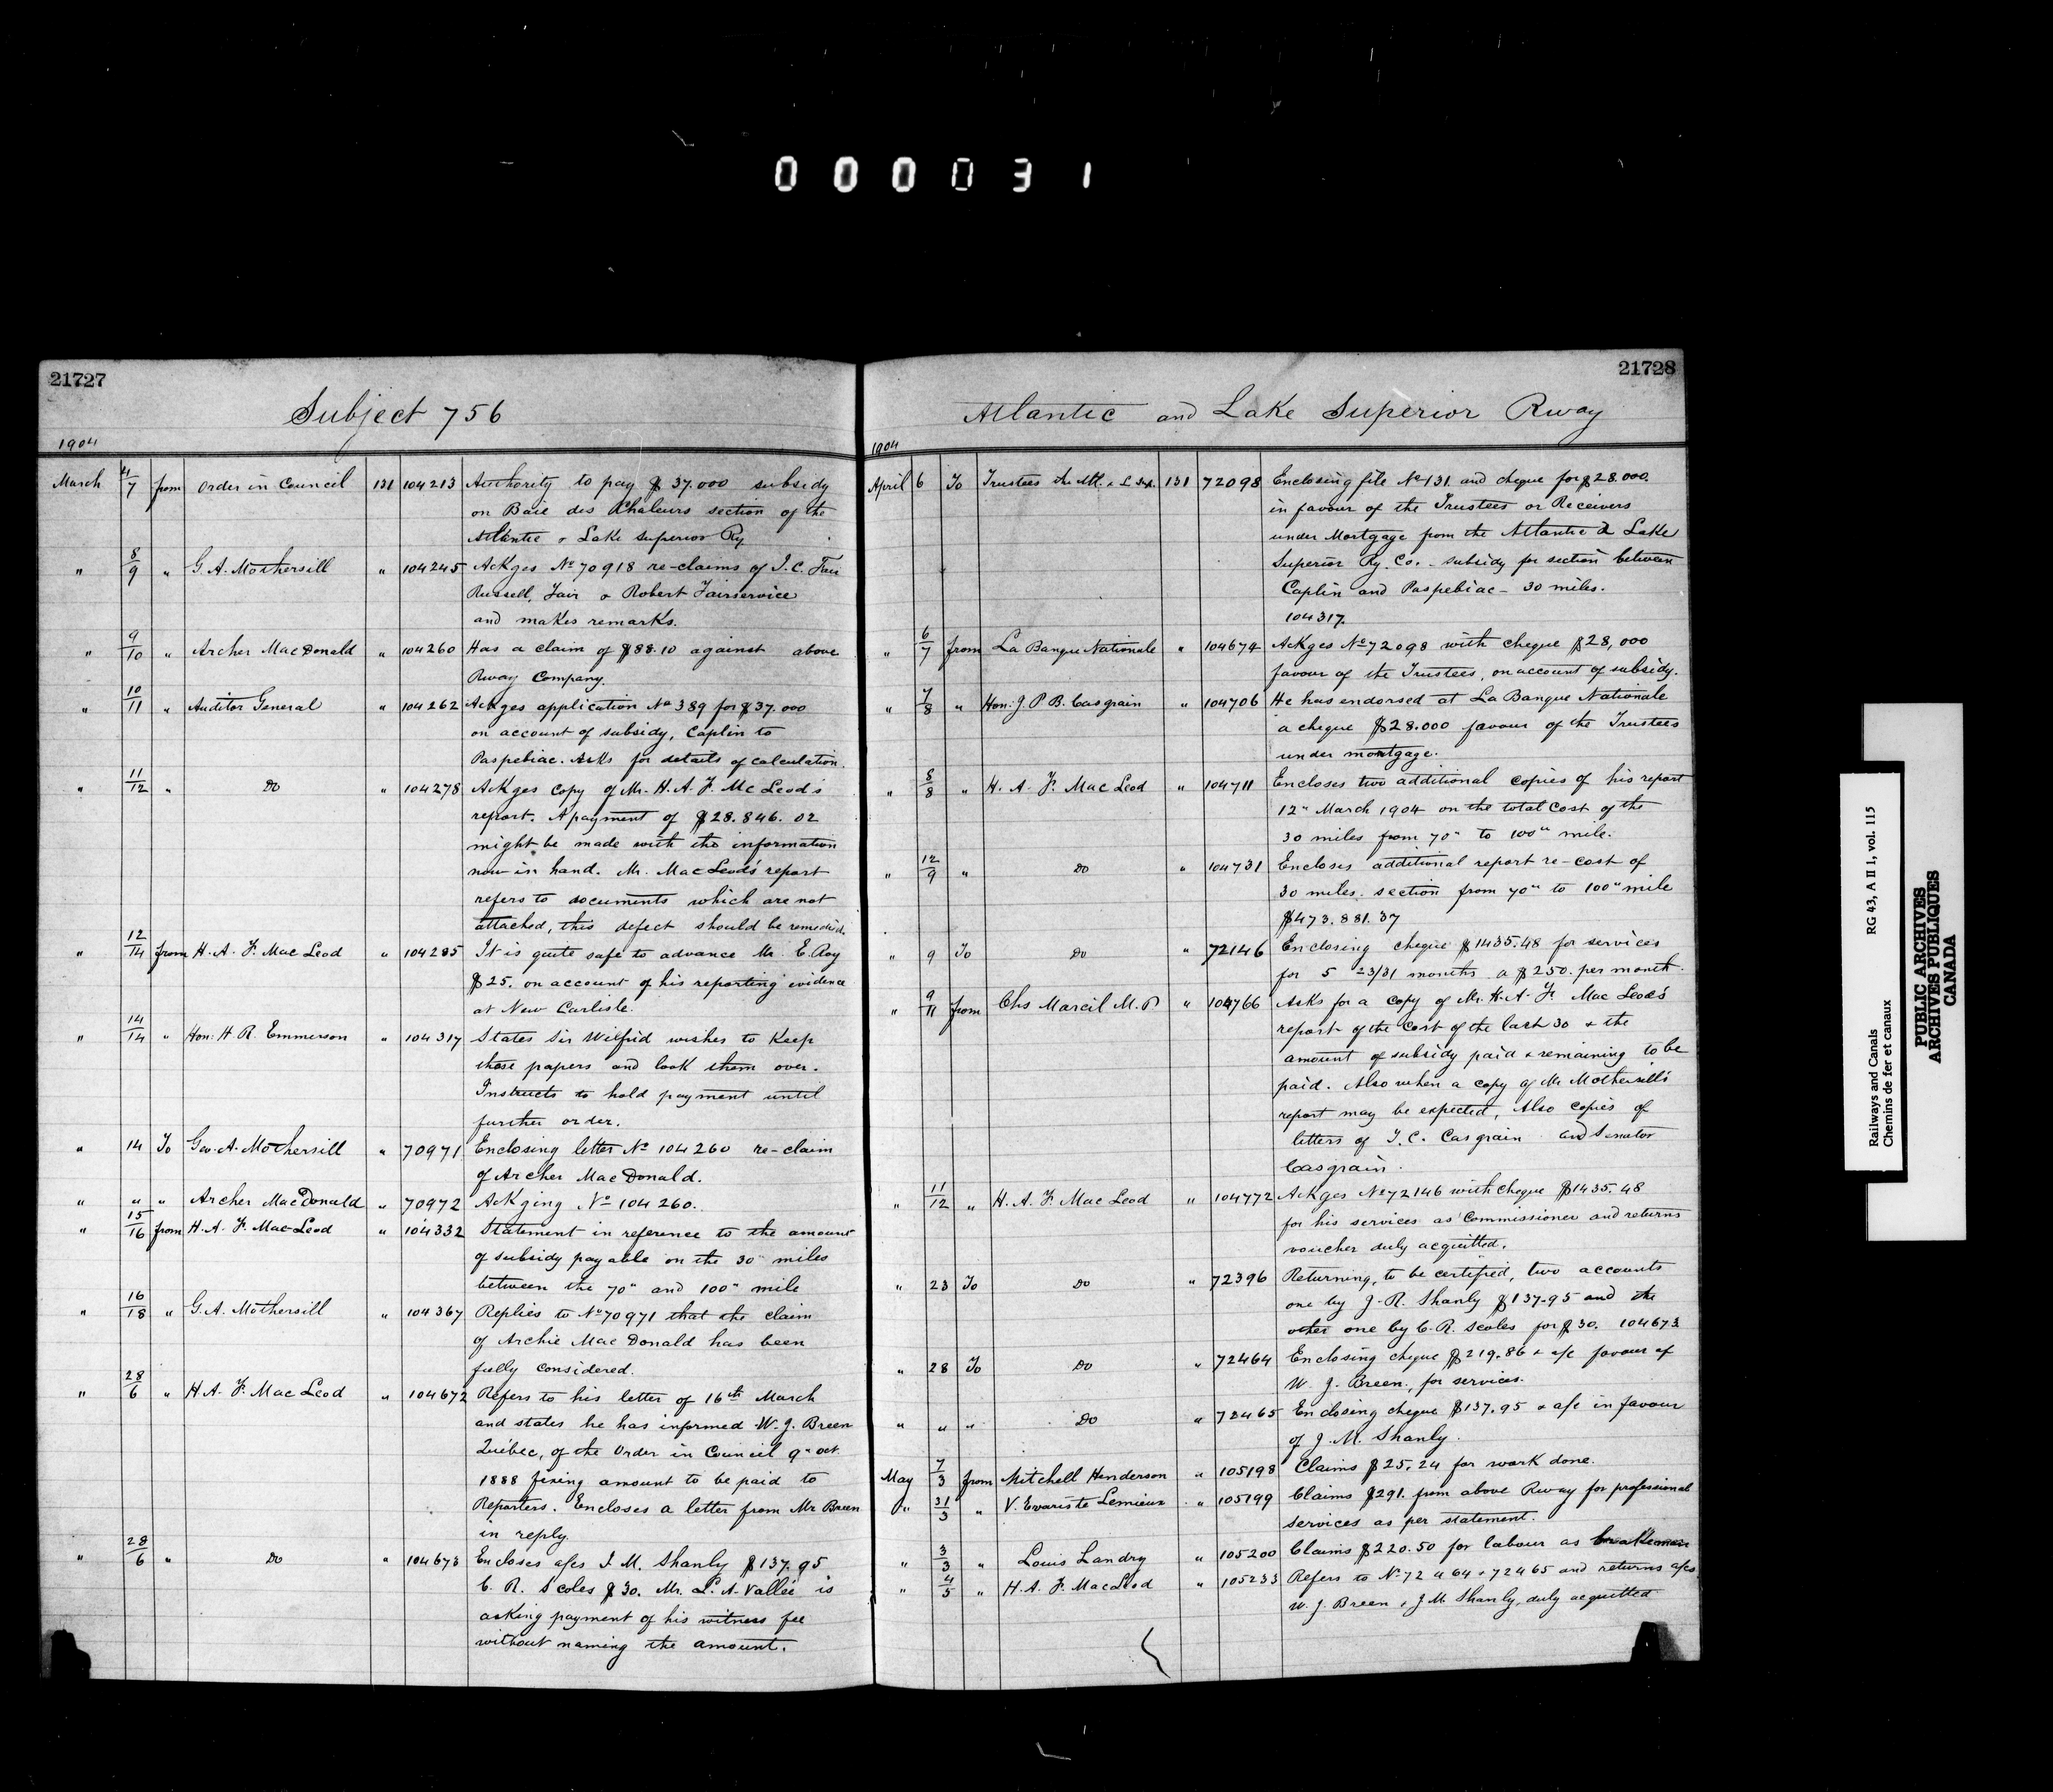 000031
21727
Subject 756
1904
March 4/7 from Order in Council 131 104213 Authority to pay $37.000 subsidy
on Baie des Chaleurs section of the
Atlantic & Lake Superior Ry
" 8/9 " G. A. Mothersill " 104245 Ackges No 70918 re-claims of J. C.
Russell, Fair & Robert Fairservice
and makes remarks.
" 9/10 " Archer MacDonald " 104260 Has a claim of $88.10 against above
Rway Company.
" 10/11 " Auditor General " 104262 Ackges application No 389 for $37.000
on account of subsidy, Caplin to
Paspebiac. Asks for details of calculation.
" 11/12 " Do " 104278 Ackges copy of Mr. H. A. F. McLeod's
report. A payment of $28.846.02
might be made with the information
now in hand. Mr. MacLeod's report
refers to documents which are not
attached, this defect should be remedied.
" 12/14 from H. A. F. MacLeod " 104285 It is quite safe to advance Mr. E. Roy
$25. on account of his reporting evidence
at New Carlisle.
" 14/14 " Hon: H. R. Emmerson " 104317 States Sir Wilfrid wishes to Keep
those papers and look them over.
Instructs to hold payment until
further order.
" 14 To Geo. A. Mothersill " 70971 Enclosing letter No 104260 re-claim
of Archer MacDonald.
" " " Archer MacDonald " 70972 Ackging No 104260.
" 15/16 from H. A. F. MacLeod " 104332 Statement in reference to the amount
of subsidy payable on the 30" miles
between the 70" and 100" mile
" 16/18 " G. A. Mothersill " 104367 Replies to No 70971 that the claim
of Archie MacDonald has been
fully considered.
" 28/6 " H. A. F. MacLeod " 104672 Refers to his letter of 16th March
and states he has informed W. J. Breen
Québec, of the Order in Council 9" Oct.
1888 fixing amount to be paid to
Reporters. Encloses a letter from Mr Breen
in reply.
" 28/6 " Do " 104673 Encloses a/cs J. M. Shanly $137.95
C. R. Scoles $30. Mr. L. A. Vallée is
asking payment of his witness fee
without naming the amount.
21728
Atlantic and Lake Superior Rway
1904
April 6 To Trustees the Atl. & L Sup. 131 72098 Enclosing file No 131 and cheque for $28.000.
in favour of the Trustees or Receivers
under Mortgage from the Atlantic & Lake
Superior Ry. Co. - subsidy for section between
Caplin and Paspebiac - 30 miles.
104317.
" 6/7 from La Banque Nationale " 104674 Ackges No 72098 with cheque $28,000
favour of the Trustees, on account of subsidy.
" 7/8 " Hon: J. P. B. Casgrain " 104706 He has endorsed at La Banque Nationale
a cheque $28.000 favour of the Trustees
under mortgage.
" 8/8 " H. A. F. MacLeod " 104711 Encloses two additional copies of his report
12" March 1904 on the total cost of the
30 miles from 70" to 100" mile.
" 12/9 " Do " 104731 Encloses additional report re-cost of
30 miles. section from 70" to 100" mile
$473.881.37
" 9 To Do " 72146 Enclosing cheque $1435.48 for services
for 5 23/31 months a $250. per month.
" 9/11 from Chs Marcil M. P. " 104766 Asks for a copy of Mr. H. A. F. MacLeod's
report of the cost of the last 30 & the
amount of subsidy paid & remaining to be
paid. Also when a copy of Mr Mothersill's
report may be expected, Also copies of
letters of T. C. Casgrain and Senator
Casgrain.
" 11/12 " H. A. F. MacLeod " 104772 Ackges No 72146 with cheque $1435.48
for his services as Commissioner and returns
voucher duly acquitted.
" 23 To Do " 72396 Returning, to be certified, two accounts
one by J. R. Shanly $137.95 and the
other one by C. R. Scoles for $30. 104673
" 28 To Do " 72464 Enclosing cheque $219.86 & a/c favour of
W. J. Breen, for services.
" " " Do " 72465 Enclosing cheque $137.95 & a/c in favour
of J. M. Shanly.
May 7/3 from Mitchell Henderson " 105198 Claims $25.24 for work done.
" 31/3 " V. Evariste Lemieux " 105199 Claims $291. from above Rway for professional
services as per statement.
" 3/3 " Louis Landry " 105200 Claims $220.50 for labour as brakeman
" 4/5 " H. A. F. MacLeod " 105233 Refers to No 72464 & 72465 and returns a/cs
W. J. Breen & J. M. Shanly, duly acquitted
Railways and Canals RG 43, A II 1, vol. 115
Chemins de fer et canaux
PUBLIC ARCHIVES
ARCHIVES PUBLIQUES
CANADA